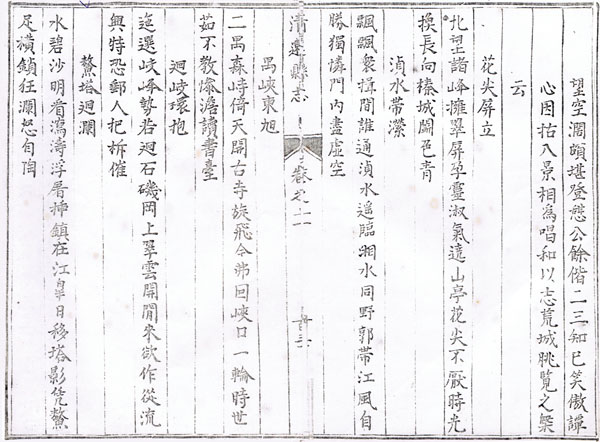 望空濶頗堪登憩公餘偕二三知己笑傲譚
心因拈八景相為唱和以志荒城眺覽之槩
云
花尖屏立
北望諸峰擁翠屏萃靈淑氣遶山亭花尖不厭時光
換長向榛城闢色青
湞水帶瀠
飄飄衆揖閒誰通湞水遙臨湘水同野郭帶江風自
勝獨憐門内盡虛空
清遠縣志
卷之十一
禺峽東旭
二禺森峙倚天開古寺旋飛今弗回峽口一輪時世
茹不教爍滅讀書臺
迴岐環抱
迤𨓦岐峰勢若迴石磯岡上翠雲開閒來欲作從流
興特恐郵人把柝催
鰲塔迴瀾
水碧沙明看瀉濤浮屠揷鎮在江臯日移塔影凭鰲
足橫鎖狂瀾怒自陶